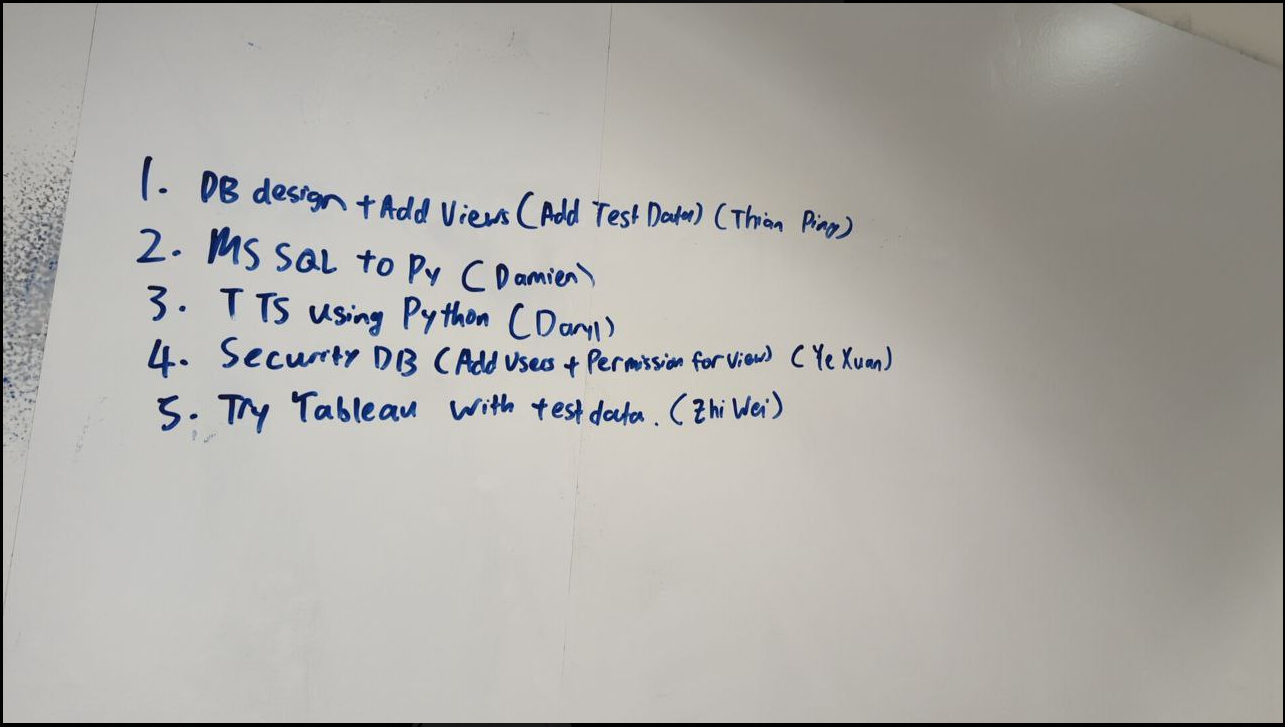 1. DB design + Add Views (Add Test Data) (Thian Ping)
2. MS SQL to Py (Damien)
3. TTS using Python (Daryl)
4. Security DB (Add Users + Permission for View) (Ye Xuan)
5. Try Tableau with test data. (Zhi Wei)